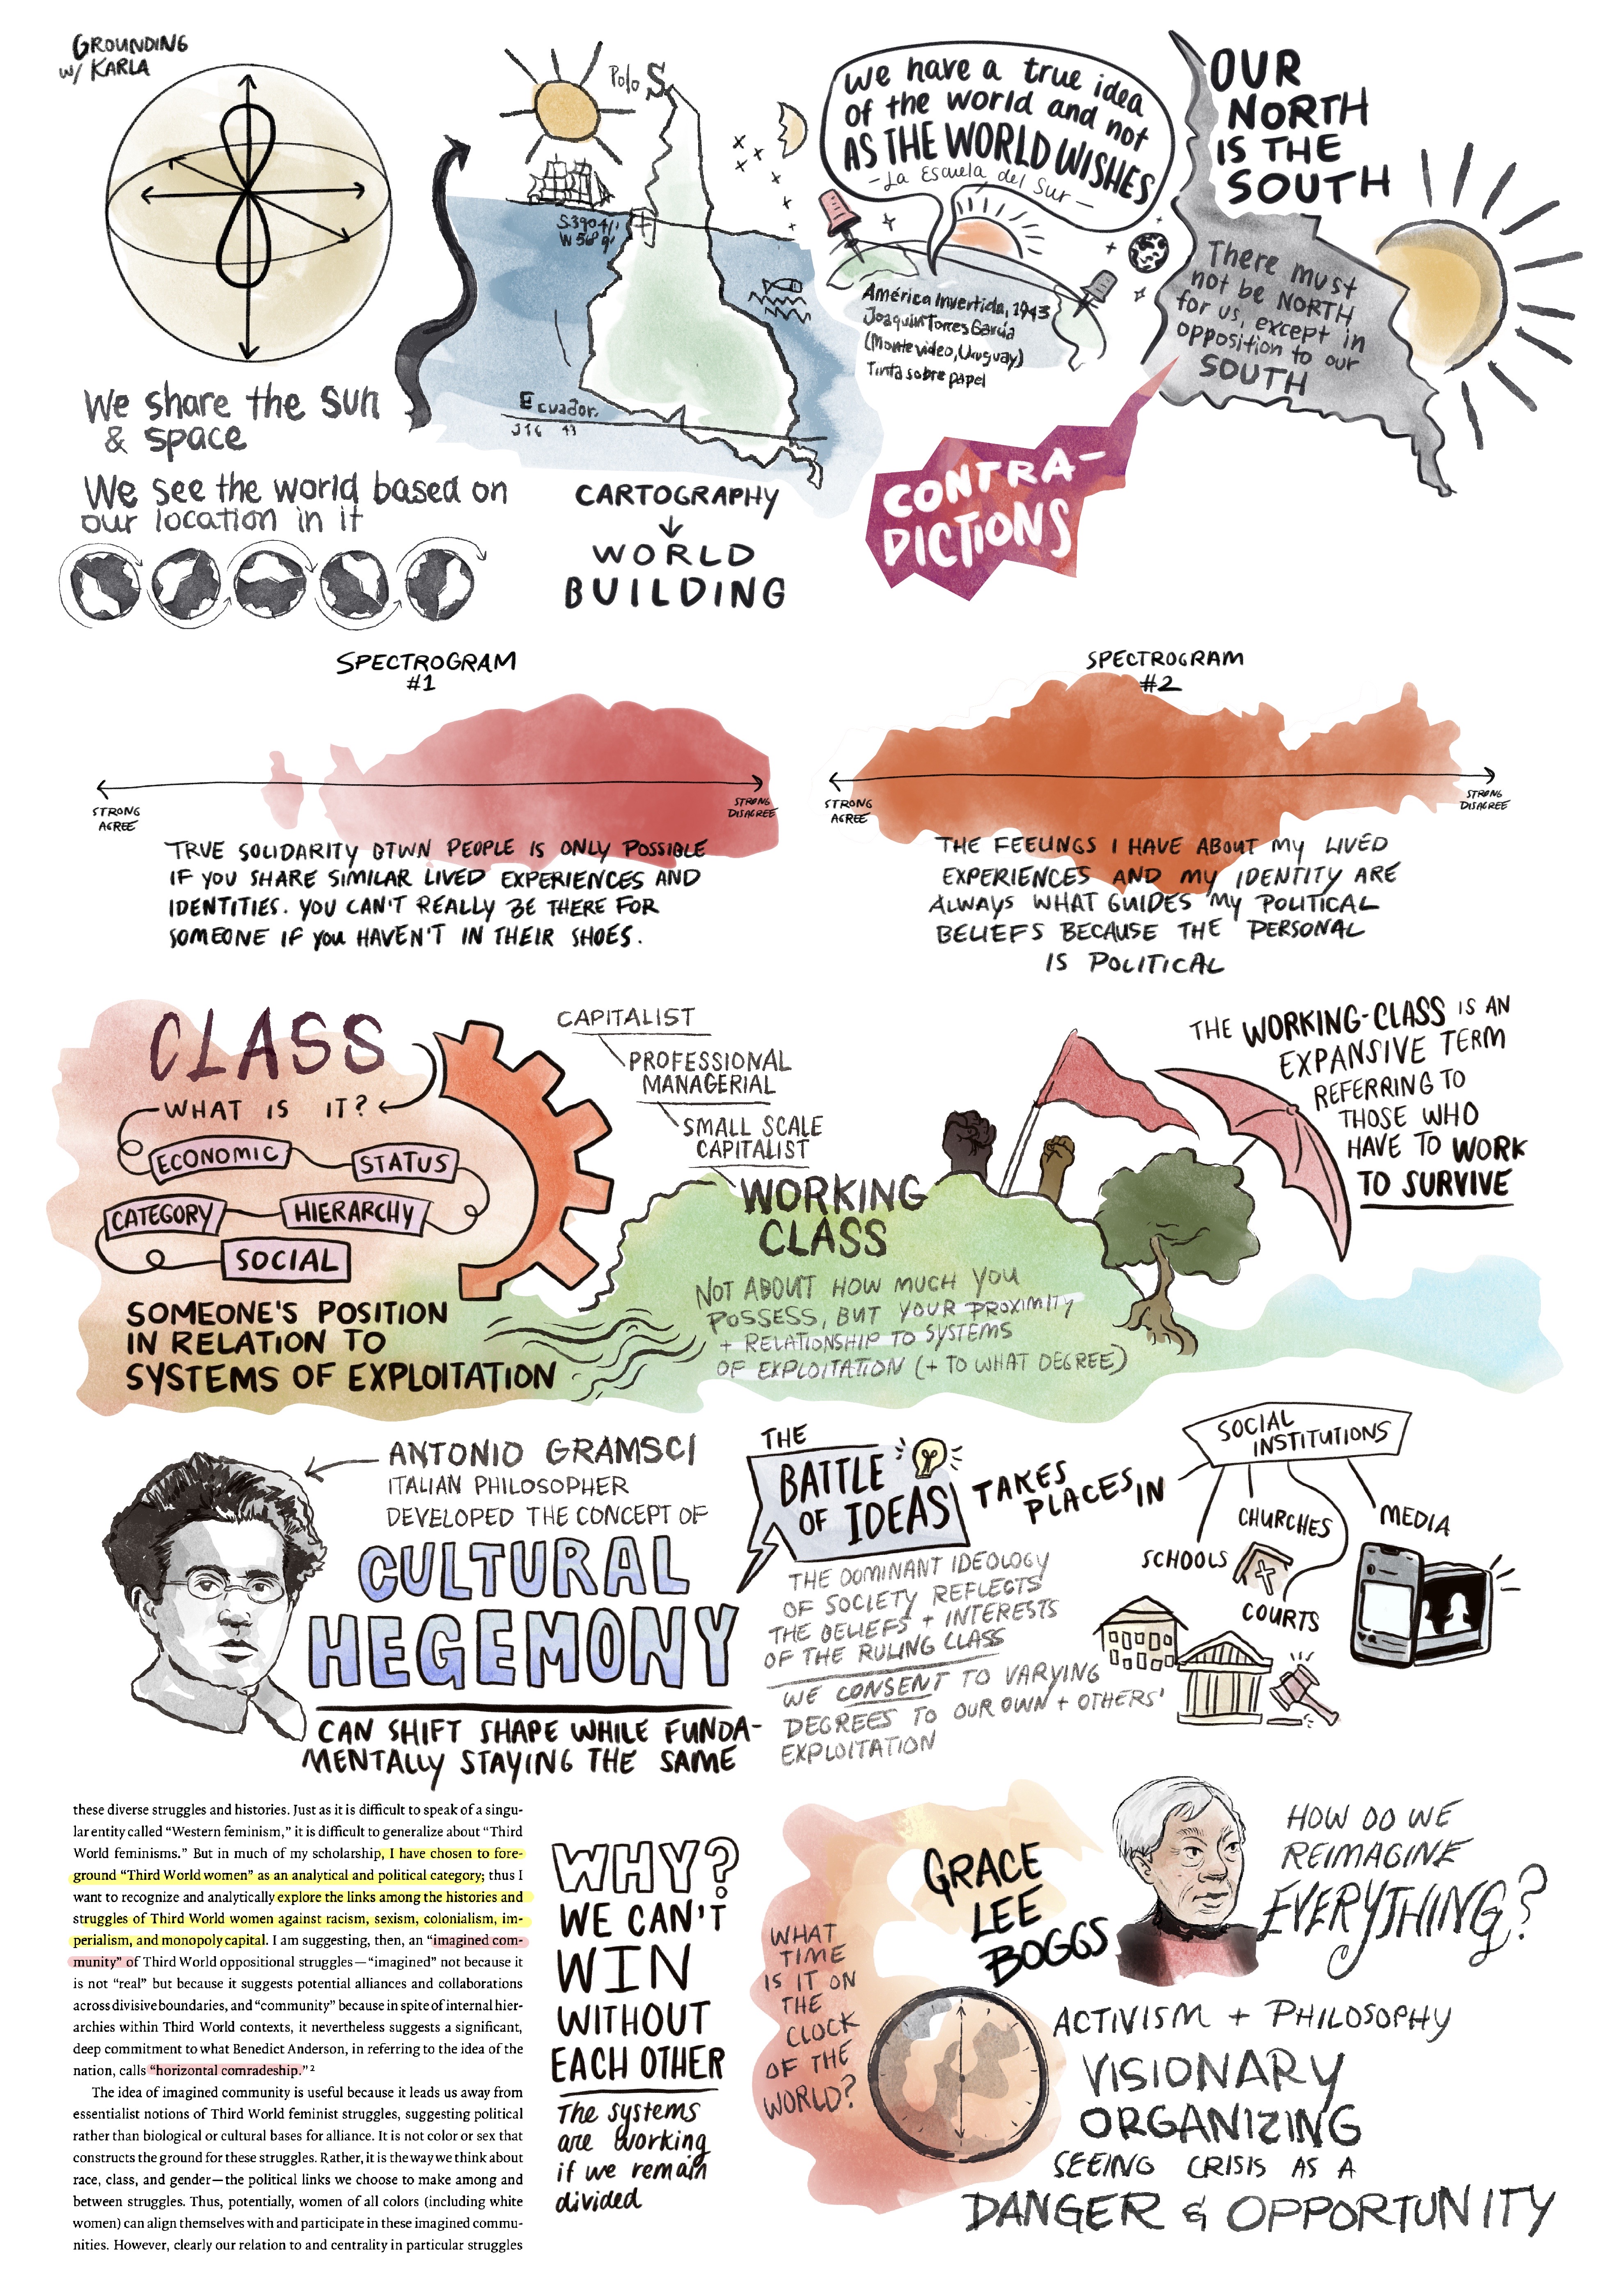 GROUNDING
W/ KARLA
We share the sun
& space
We see the world based on
our location in it
Polo S.
S.390 41'
W 56º 9'
Ecuador.
JTG 43
CARTOGRAPHY
WORLD
BUILDING
we have a true idea
of the world and not
AS THE WORLD WISHES
- La Escuela del Sur -
América Invertida, 1943
Joaquín Torres García
(Montevideo, Uruguay)
Tinta sobre papel
OUR
NORTH
IS THE
SOUTH
There must
not be NORTH
for us, except in
opposition to our
SOUTH
CONTRA-
DICTIONS
SPECTROGRAM
#1
STRONG
AGREE
STRONG
DISAGREE
TRUE SOLIDARITY BTWN PEOPLE IS ONLY POSSIBLE
IF YOU SHARE SIMILAR LIVED EXPERIENCES AND
IDENTITIES. YOU CAN'T REALLY BE THERE FOR
SOMEONE IF YOU HAVEN'T IN THEIR SHOES.
SPECTROGRAM
#2
STRONG
AGREE
STRONG
DISAGREE
THE FEELINGS I HAVE ABOUT MY LIVED
EXPERIENCES AND MY IDENTITY ARE
ALWAYS WHAT GUIDES MY POLITICAL
BELIEFS BECAUSE THE PERSONAL
IS POLITICAL
CLASS
WHAT IS IT?
ECONOMIC
STATUS
CATEGORY
HIERARCHY
SOCIAL
SOMEONE'S POSITION
IN RELATION TO
SYSTEMS OF EXPLOITATION
CAPITALIST
PROFESSIONAL
MANAGERIAL
SMALL SCALE
CAPITALIST
WORKING
CLASS
NOT ABOUT HOW MUCH YOU
POSSESS, BUT YOUR PROXIMITY
+ RELATIONSHIP TO SYSTEMS
OF EXPLOITATION (+ TO WHAT DEGREE)
THE WORKING-CLASS IS AN
EXPANSIVE TERM
REFERRING TO
THOSE WHO
HAVE TO WORK
TO SURVIVE
ANTONIO GRAMSCI
ITALIAN PHILOSOPHER
DEVELOPED THE CONCEPT OF
CULTURAL
HEGEMONY
CAN SHIFT SHAPE WHILE FUNDA-
MENTALLY STAYING THE SAME
THE
BATTLE
OF IDEAS
TAKES
PLACES IN
THE DOMINANT IDEOLOGY
OF SOCIETY REFLECTS
THE BELIEFS + INTERESTS
OF THE RULING CLASS
WE CONSENT TO VARYING
DEGREES TO OUR OWN + OTHERS'
EXPLOITATION
SOCIAL
INSTITUTIONS
CHURCHES
MEDIA
SCHOOLS
COURTS
these diverse struggles and histories. Just as it is difficult to speak of a singu-
lar entity called “Western feminism,” it is difficult to generalize about “Third
World feminisms.” But in much of my scholarship, I have chosen to fore-
ground “Third World women” as an analytical and political category; thus I
want to recognize and analytically explore the links among the histories and
struggles of Third World women against racism, sexism, colonialism, im-
perialism, and monopoly capital. I am suggesting, then, an “imagined com-
munity” of Third World oppositional struggles—“imagined” not because it
is not “real” but because it suggests potential alliances and collaborations
across divisive boundaries, and “community” because in spite of internal hier-
archies within Third World contexts, it nevertheless suggests a significant,
deep commitment to what Benedict Anderson, in referring to the idea of the
nation, calls “horizontal comradeship.”2
The idea of imagined community is useful because it leads us away from
essentialist notions of Third World feminist struggles, suggesting political
rather than biological or cultural bases for alliance. It is not color or sex that
constructs the ground for these struggles. Rather, it is the way we think about
race, class, and gender—the political links we choose to make among and
between struggles. Thus, potentially, women of all colors (including white
women) can align themselves with and participate in these imagined commu-
nities. However, clearly our relation to and centrality in particular struggles
WHY?
WE CAN'T
WIN
WITHOUT
EACH OTHER
The systems
are working
if we remain
divided
WHAT
TIME
IS IT ON
THE
CLOCK
OF THE
WORLD?
GRACE
LEE
BOGGS
HOW DO WE
REIMAGINE
EVERYTHING?
ACTIVISM + PHILOSOPHY
VISIONARY
ORGANIZING
SEEING CRISIS AS A
DANGER & OPPORTUNITY